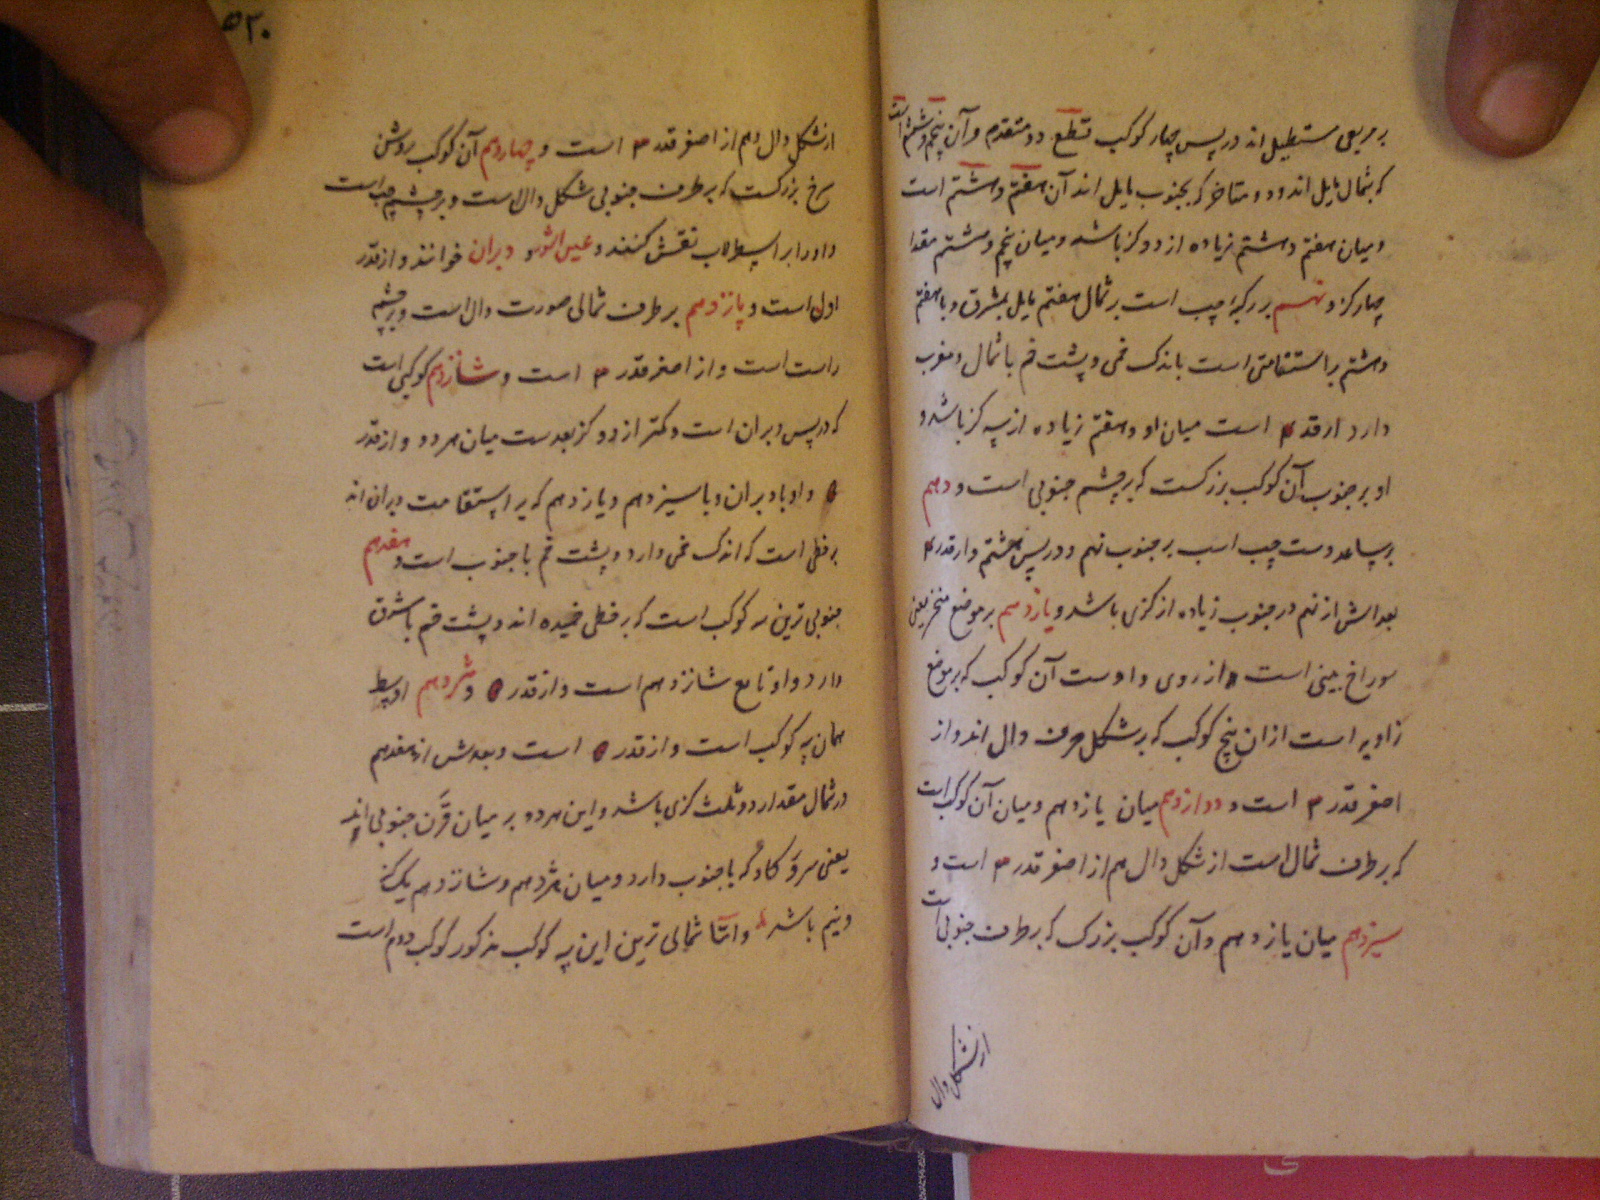 بر مربعی مستطیل اند در پس چهار کوکب قطع دو متقدم و آن پنجم و ششم است
که بشمال مایل اند و دو متاخر که بجنوب مایل اند آن هفتم و هشتم است
و میان هفتم و هشتم زیاده از دو گز باشد و میان پنجم و هشتم مقدار
چهار گز و نهم بر رکبه چپ است بر شمال هفتم مایل بمشرق و با هفتم
و هشتم بر استقامتی است باندک خمی و پشت خم با شمال و مغرب
دارد از قدر ۴ است میان او و هفتم زیاده از سه گز باشد و
او بر جنوب آن کوکب بزرکست که بر چشم جنوبی است و دهم
بر ساعد دست چپ است بر جنوب نهم و در پس هشتم و از قدر ۴
بعدش از نهم در جنوب زیاده از گزی باشد و یازدهم بر موضع منخر یعنی
سوراخ بینی است از روی و اوست آن کوکب که بر موضع
زاویه است از ان پنج کوکب که بر شکل حرف دال اند و از
اصغر قدر ۳ است و دوازدهم میان یازدهم و میان آن کوکب است
که بر طرف شمال است از شکل دال هم از اصغر قدر ۳ است و
سیزدهم میان یازدهم و آن کوکب بزرک که بر طرف جنوبی است
از شکل دال
۵۳۰
از شکل دال هم از اصغر قدر ۳ است و چهاردهم آن کوکب روشن
سرخ بزرکست که بر طرف جنوبی شکل دال است و بر چشم چپ است
و او را بر اسطرلاب نقش کنند و عین الثور و دبران خوانند و از قدر
اول است و پانزدهم بر طرف شمالی صورت دال است و بر چشم
راست است و از اصغر قدر ۳ است و شانزدهم کوکبی است
که در پس دبران است و کمتر از دو گز بعدست میان هر دو و از قدر
۵ و او با دبران و با سیزدهم و یازدهم که بر استقامت دبران اند
بر خطی است که اندک خمی دارد و پشت خم با جنوب است و هفدهم
جنوبی ترین سه کوکب است که بر خطی خمیده اند و پشت خم با شرق
دارد و او تابع شانزدهم است و از قدر ۵ و هژدهم اوسط
همان سه کوکب است و از قدر ۵ است و بعدش از هفدهم
در شمال مقدار دو ثلث گزی باشد و این هر دو بر میان قرن جنوبی اند
یعنی سرو کاو که با جنوب دارد و میان هژدهم و شانزدهم یک گز
و نیم باشد و اما شمالی ترین این سه کوکب مذکور کوکب دوم است